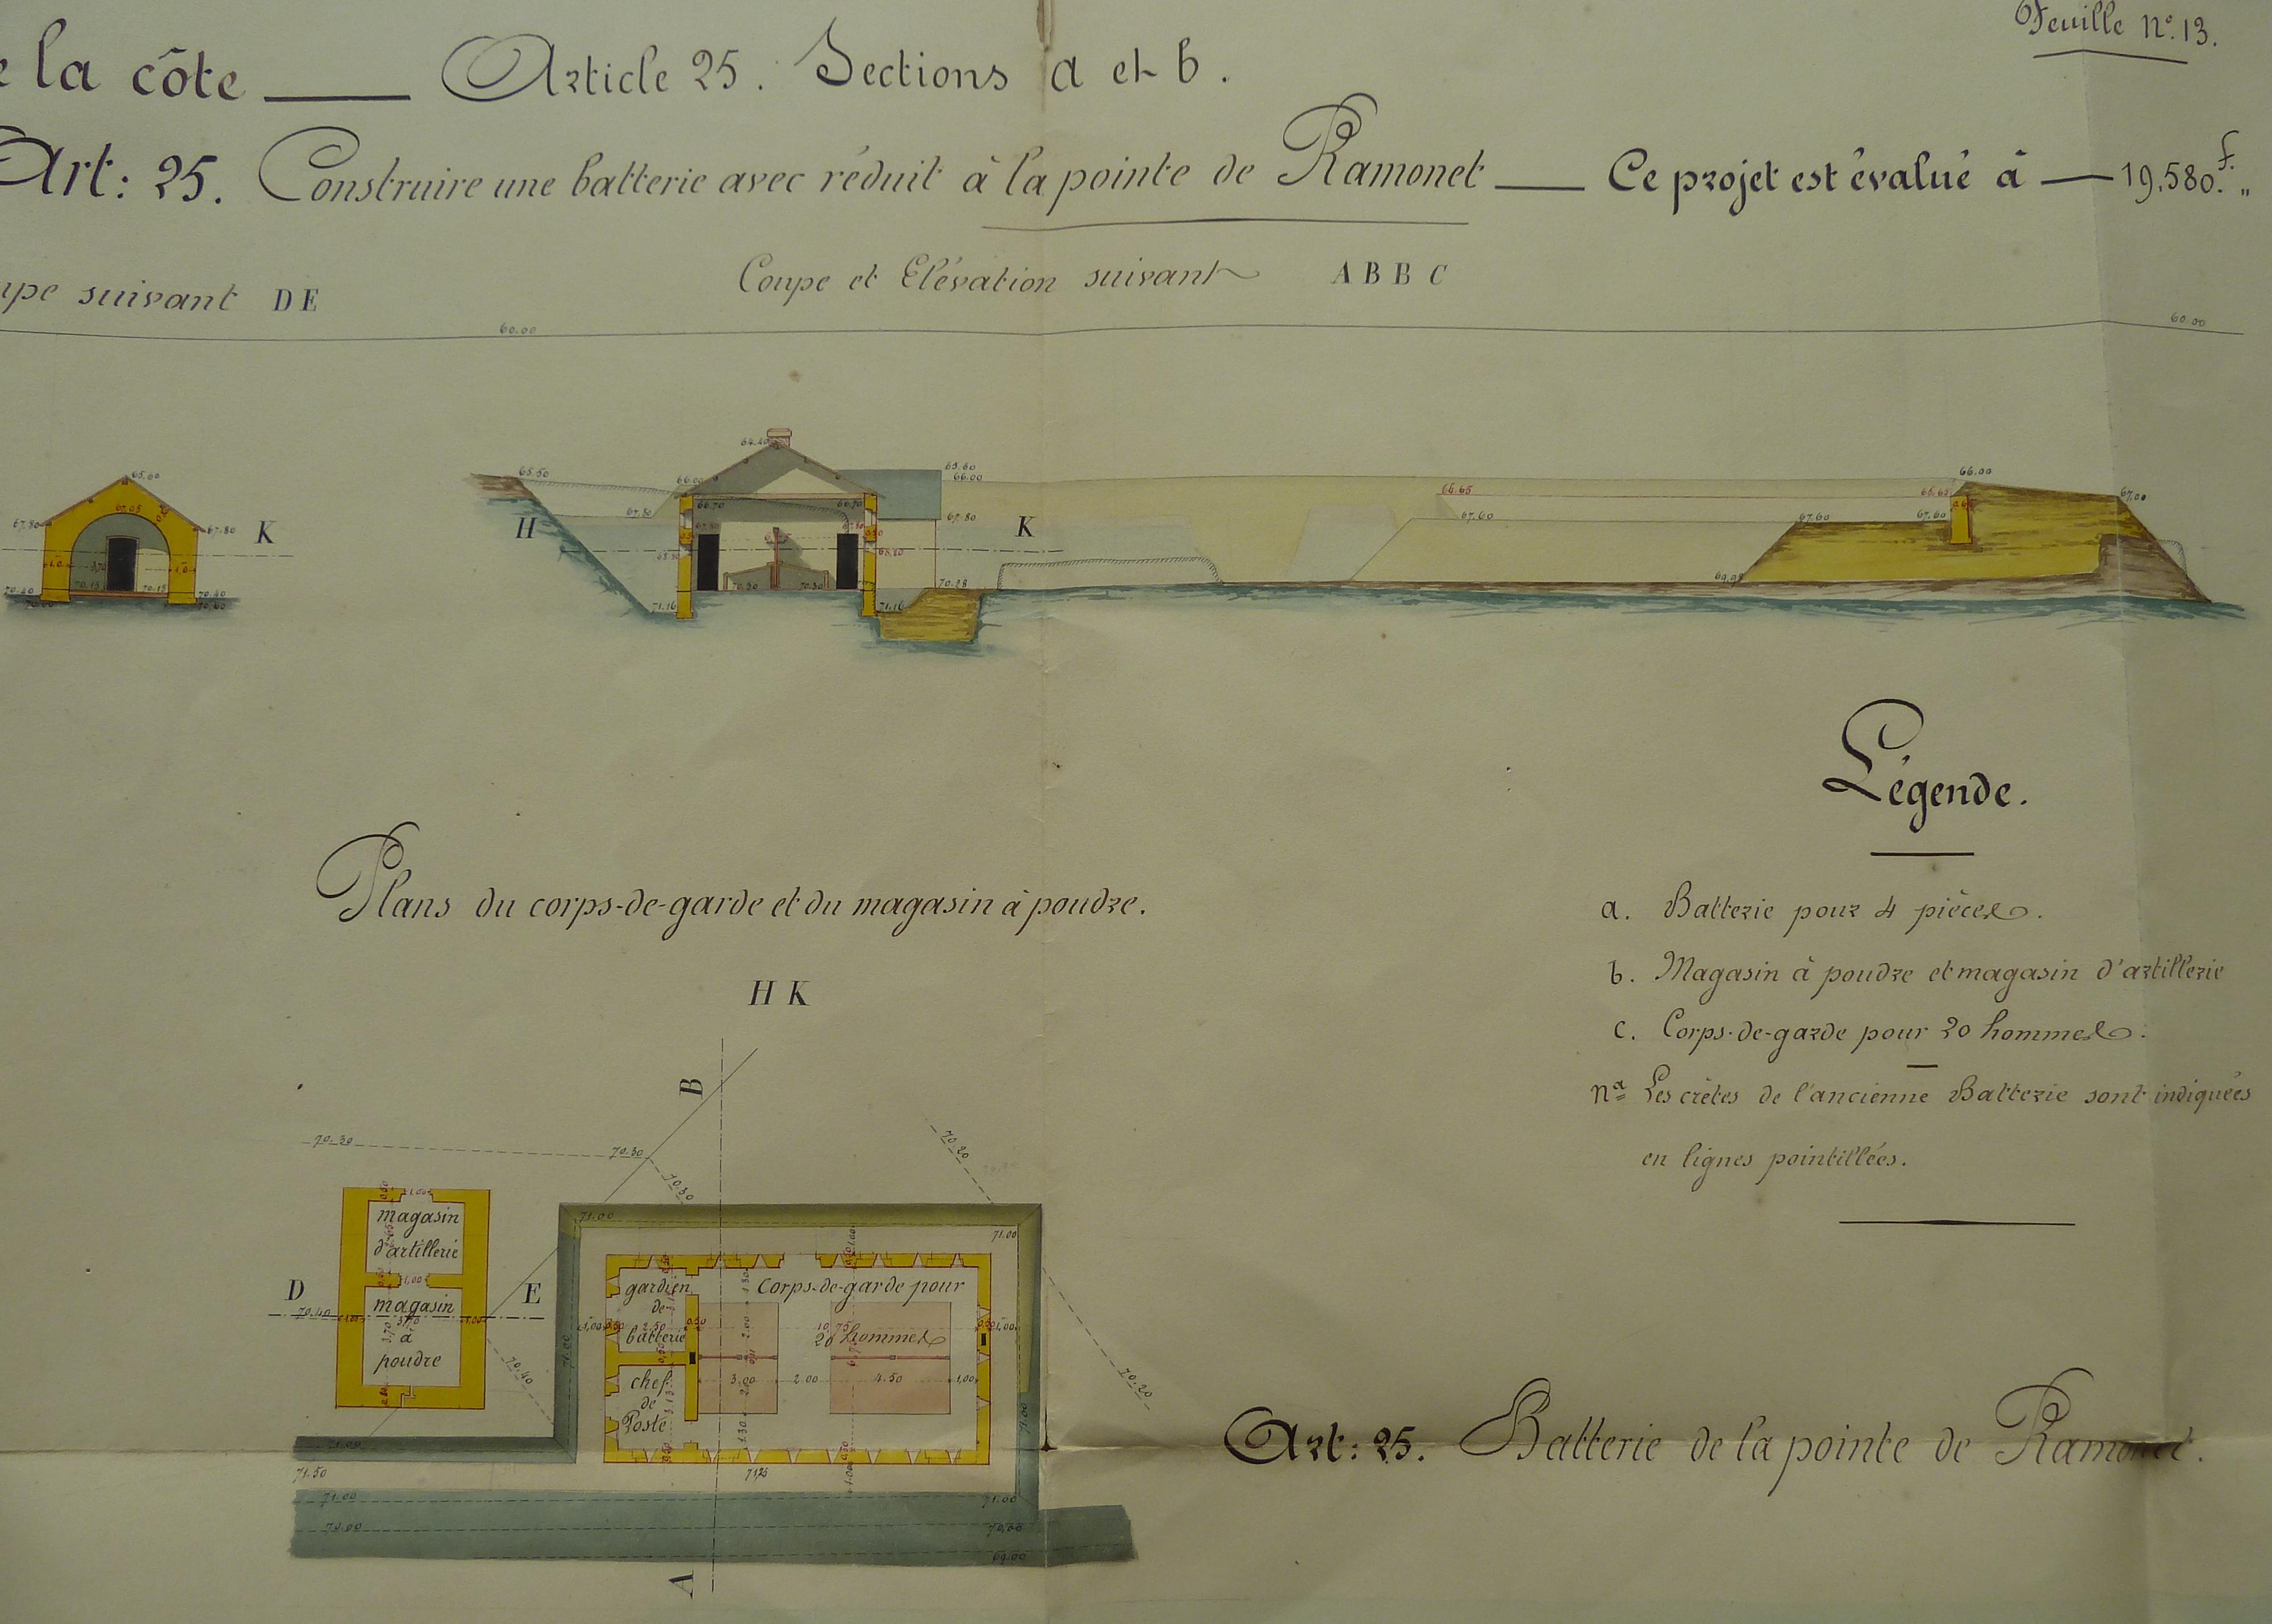 Feuille n.° 13.
la côte — Article 25. Sections a et b.
Art: 25. Construire une batterie avec réduit à la pointe de Ramonet — Ce projet est évalué à — 19,580.f „
suivant D E
Coupe et Elévation suivant A B B C
60.00
60.00
65.60
67.80
67.05
67.80
K
3,70
70.40
70.15
70.15
70.40
70.60
64.40
65.50
66.00
65.60
66.00
66.70
66.70
67.80
67.80
H
K
70.30
70.30
70.28
71.16
71.16
66.65
67.60
66.00
66.65
67.00
67.60
67.60
Légende.
a. Batterie pour 4 pièces.
b. Magasin à poudre et magasin d'artillerie
c. Corps-de-garde pour 20 hommes.
nª Les crêtes de l'ancienne Batterie sont indiquées
en lignes pointillées.
Plans du corps-de-garde et du magasin à poudre.
H K
B
70.30
70.30
70.30
70.20
71.00
71.00
1,00
magasin
d'artillerie
1,00
D
E
70.40
magasin
3,70
à
poudre
70.40
gardien
de
batterie
chef
de
Poste
Corps-de-garde pour
20 hommes
10,75
2.50
3.00
2.00
4.50
1,00
71.00
71.00
70.20
71.00
71.50
71.25
71.00
71.00
70.00
70.00
69.00
A
Art: 25. Batterie de la pointe de Ramonet.